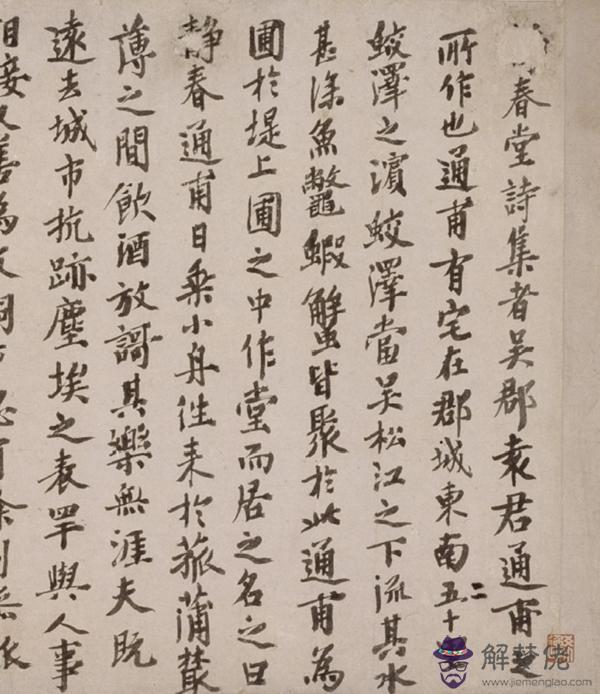 春堂詩集者吳郡袁君通甫之
所作也通甫有宅在郡城東南五十二
蛟澤之濱蛟澤當吳松江之下流其水
甚深魚鼈蝦蟹皆聚於此通甫為
圃於堤上圃之中作堂而居之名之曰
靜春通甫日乘小舟往来於菰蒲叢
薄之間飲酒放謌其樂無涯夫既
遠去城市抗跡塵埃之表罕與人事
相接又善為文
解梦佬
www.jiemenglao.com